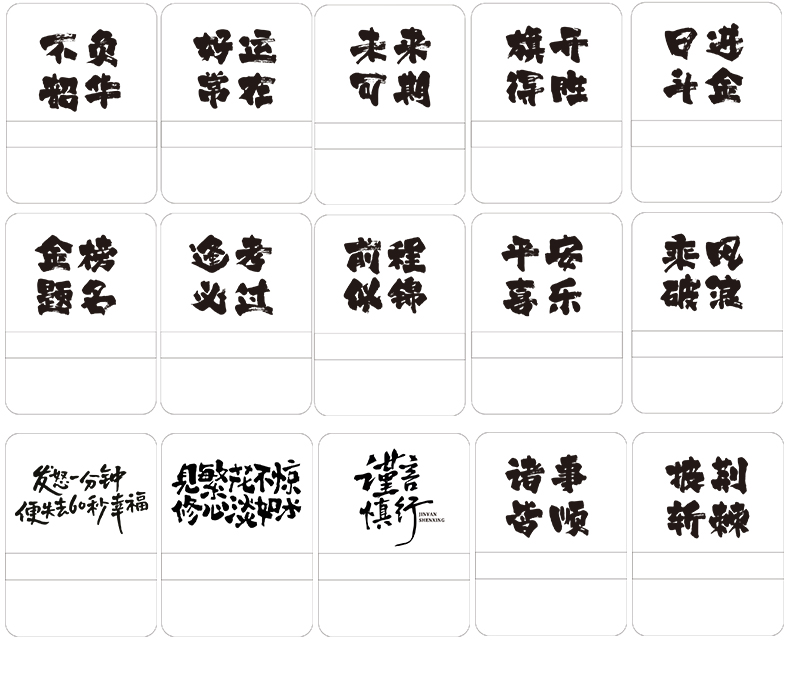 不负
韶华
好运
常在
未来
可期
旗开
得胜
日进
斗金
金榜
题名
逢考
必过
前程
似锦
平安
喜乐
乘风
破浪
发怒一分钟
便失去60秒幸福
见繁花不惊
修心淡如水
谨言
慎行
JINYAN
SHENXING
诸事
皆顺
披荆
斩棘